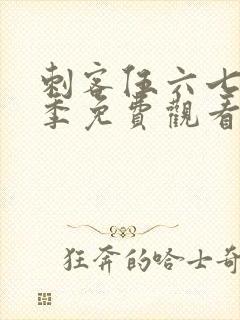 刺客伍六七
季免費觀看
狂奔的哈士奇